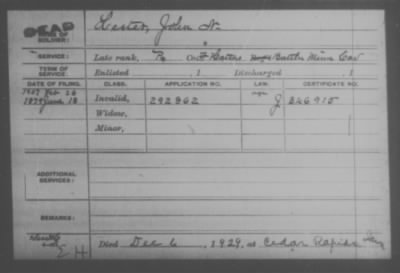 DEAD
NAME OF SOLDIER: Lester, John N.
SERVICE: Late rank, Co. F Battn Minn Cav
TERM OF SERVICE: Enlisted , 1 Discharged , 1
DATE OF FILING. CLASS. APPLICATION NO. LAW. CERTIFICATE NO.
1927 Feb 26
1879 June 18 Invalid, 292862 J 226915
Widow,
Minor,
ADDITIONAL SERVICES:
REMARKS:
Died Dec 6, 1929, at Cedar Rapids